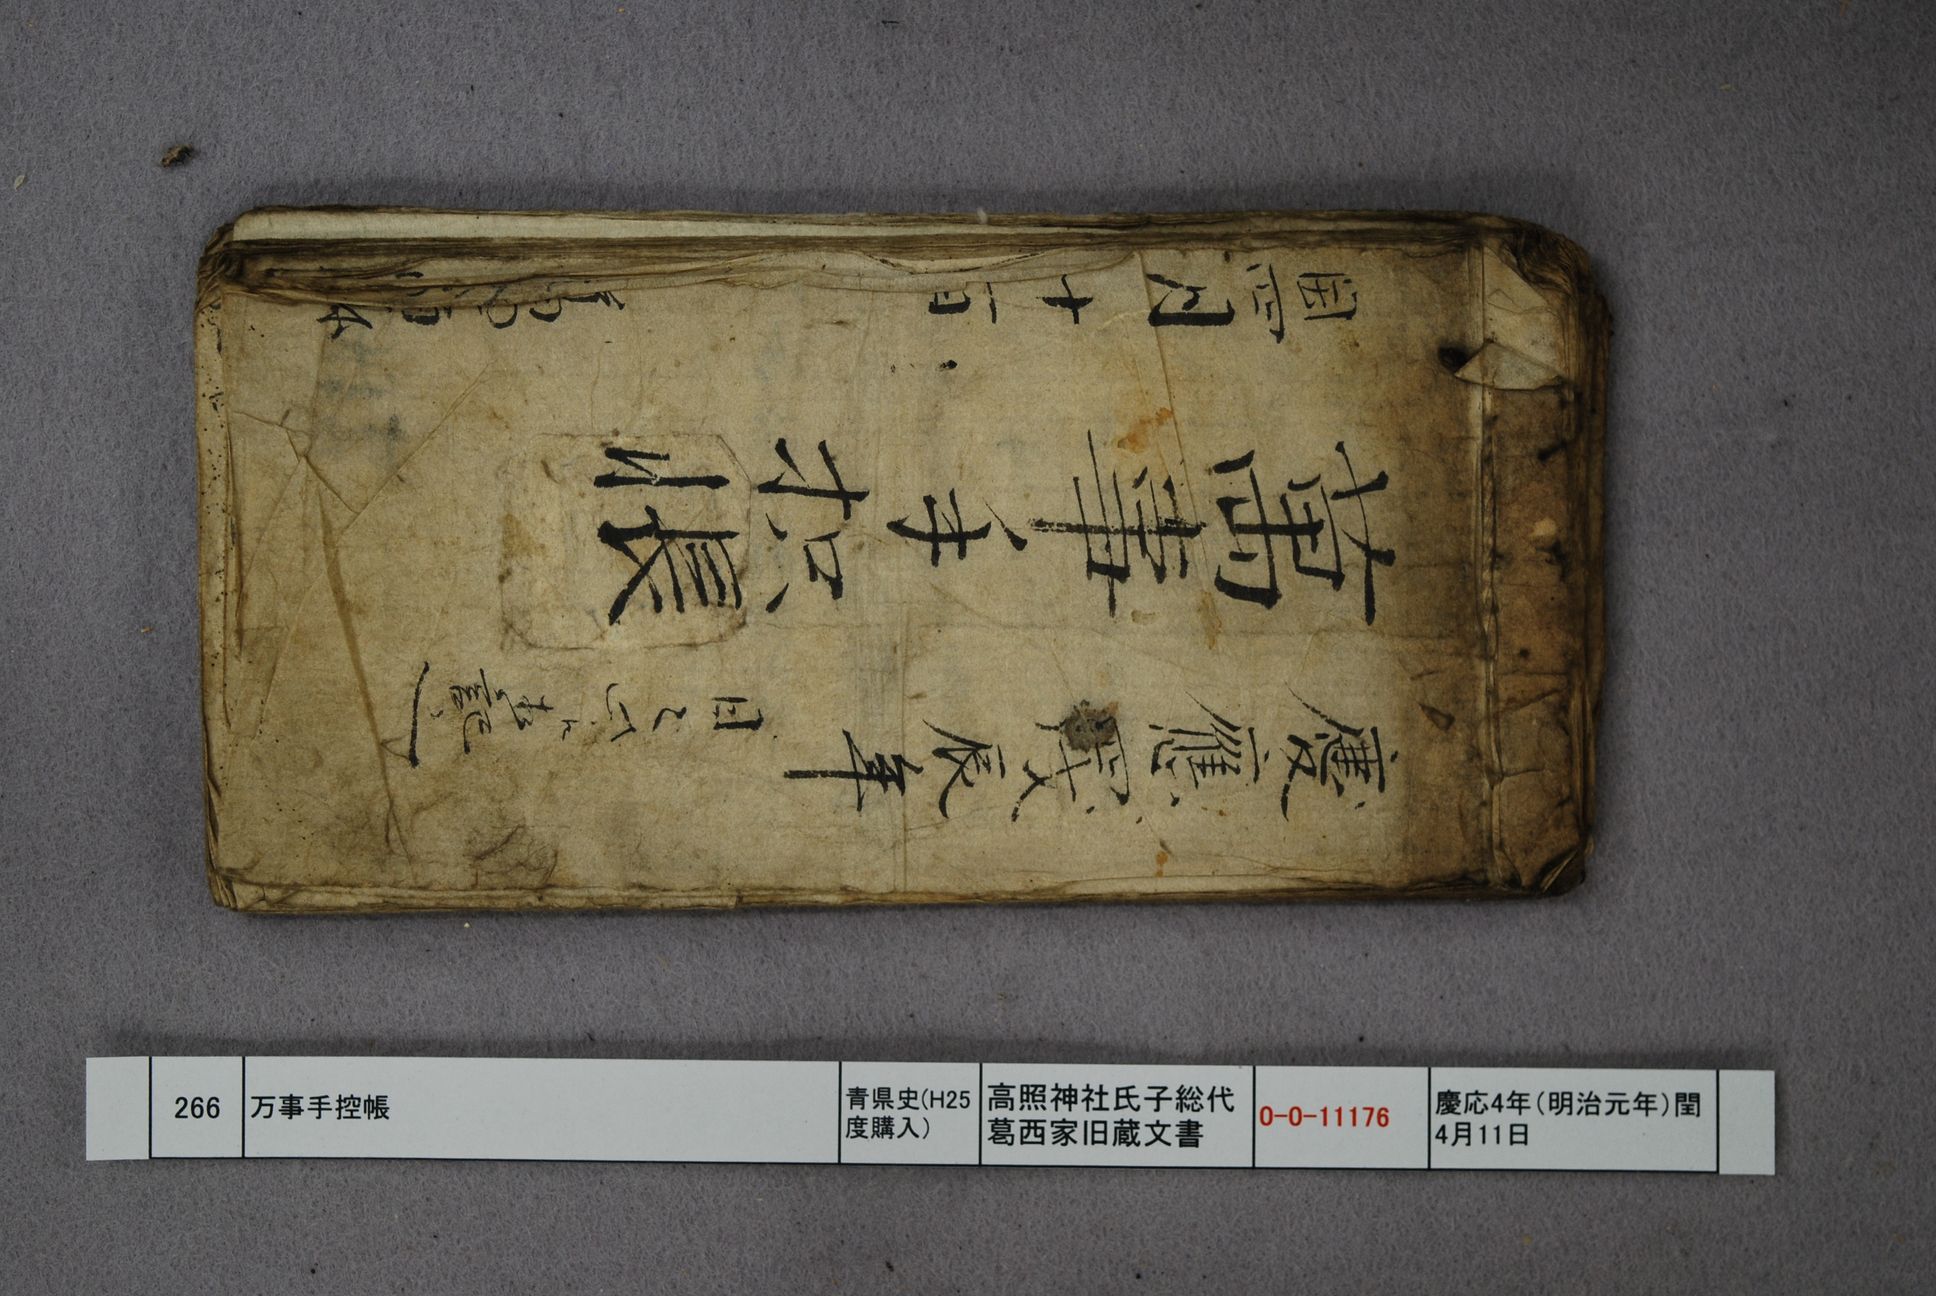 慶應四戊辰年
萬事手扣帳
閏四月十一日
266
万事手控帳
青県史(H25
度購入)
高照神社氏子総代
葛西家旧蔵文書
O-O-11176
慶応4年(明治元年)閏
4月11日